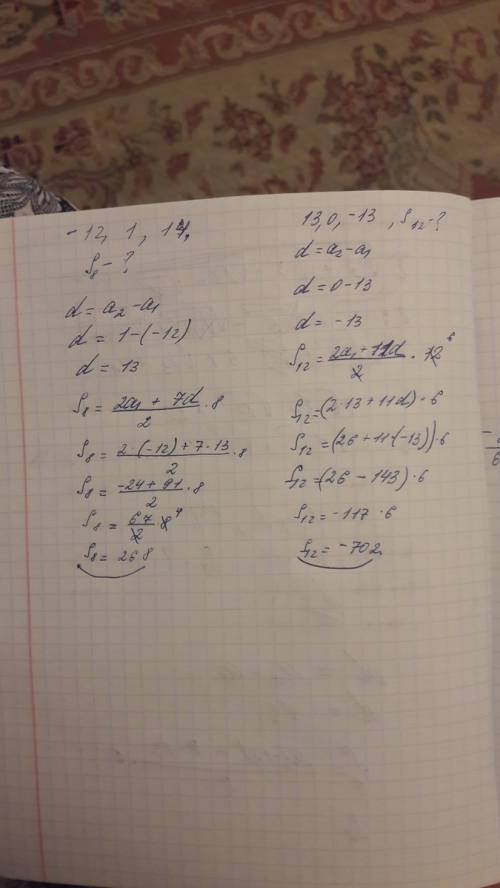 -12, 1, 14,
S₈ - ?
d = a₂ - a₁
d = 1-(-12)
d = 13
S₈ = (2a₁ + 7d)/2 · 8
S₈ = (2·(-12)+7·13)/2 · 8
S₈ = (-24+91)/2 · 8
S₈ = 67/2 · 8 4
S₈ = 268
13, 0, -13 , S₁₂ - ?
d = a₂ - a₁
d = 0-13
d = -13
S₁₂ = (2a₁ + 11d)/2 · 12 6
S₁₂ = (2·13+11d)·6
S₁₂ = (26+11·(-13))·6
S₁₂ = (26 - 143)·6
S₁₂ = -117·6
S₁₂ = -702